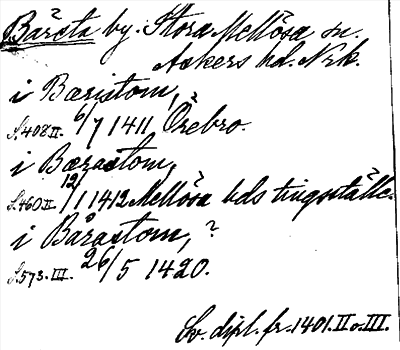 Bärsta by. Stora Mellösa sn.
Askers hd. Nrk.
i Bæristom,
S. 408 II. 6/7 1411, Örebro.
i Bærastom,
S. 460 II. 12/1 1412 Mellösa hds tingställe.
i Bårastom, ?
S. 573. III. 26/5 1420.
Sv. dipl. fr. 1401. II o. III.